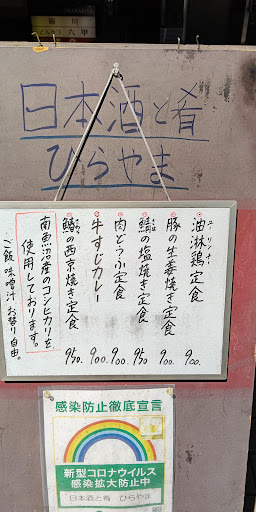 日本酒と肴
ひらやま
油淋鶏定食 900.
豚の生姜焼き定食 900.
鯖の塩焼き定食 950
肉どうふ定食 900.
牛すじカレー 900.
鰆の西京焼き定食 950
南魚沼産のコシヒカリを
使用しております。
ご飯 味噌汁 お替り自由。
感染防止徹底宣言
新型コロナウイルス
感染拡大防止中
日本酒と肴 ひらやま